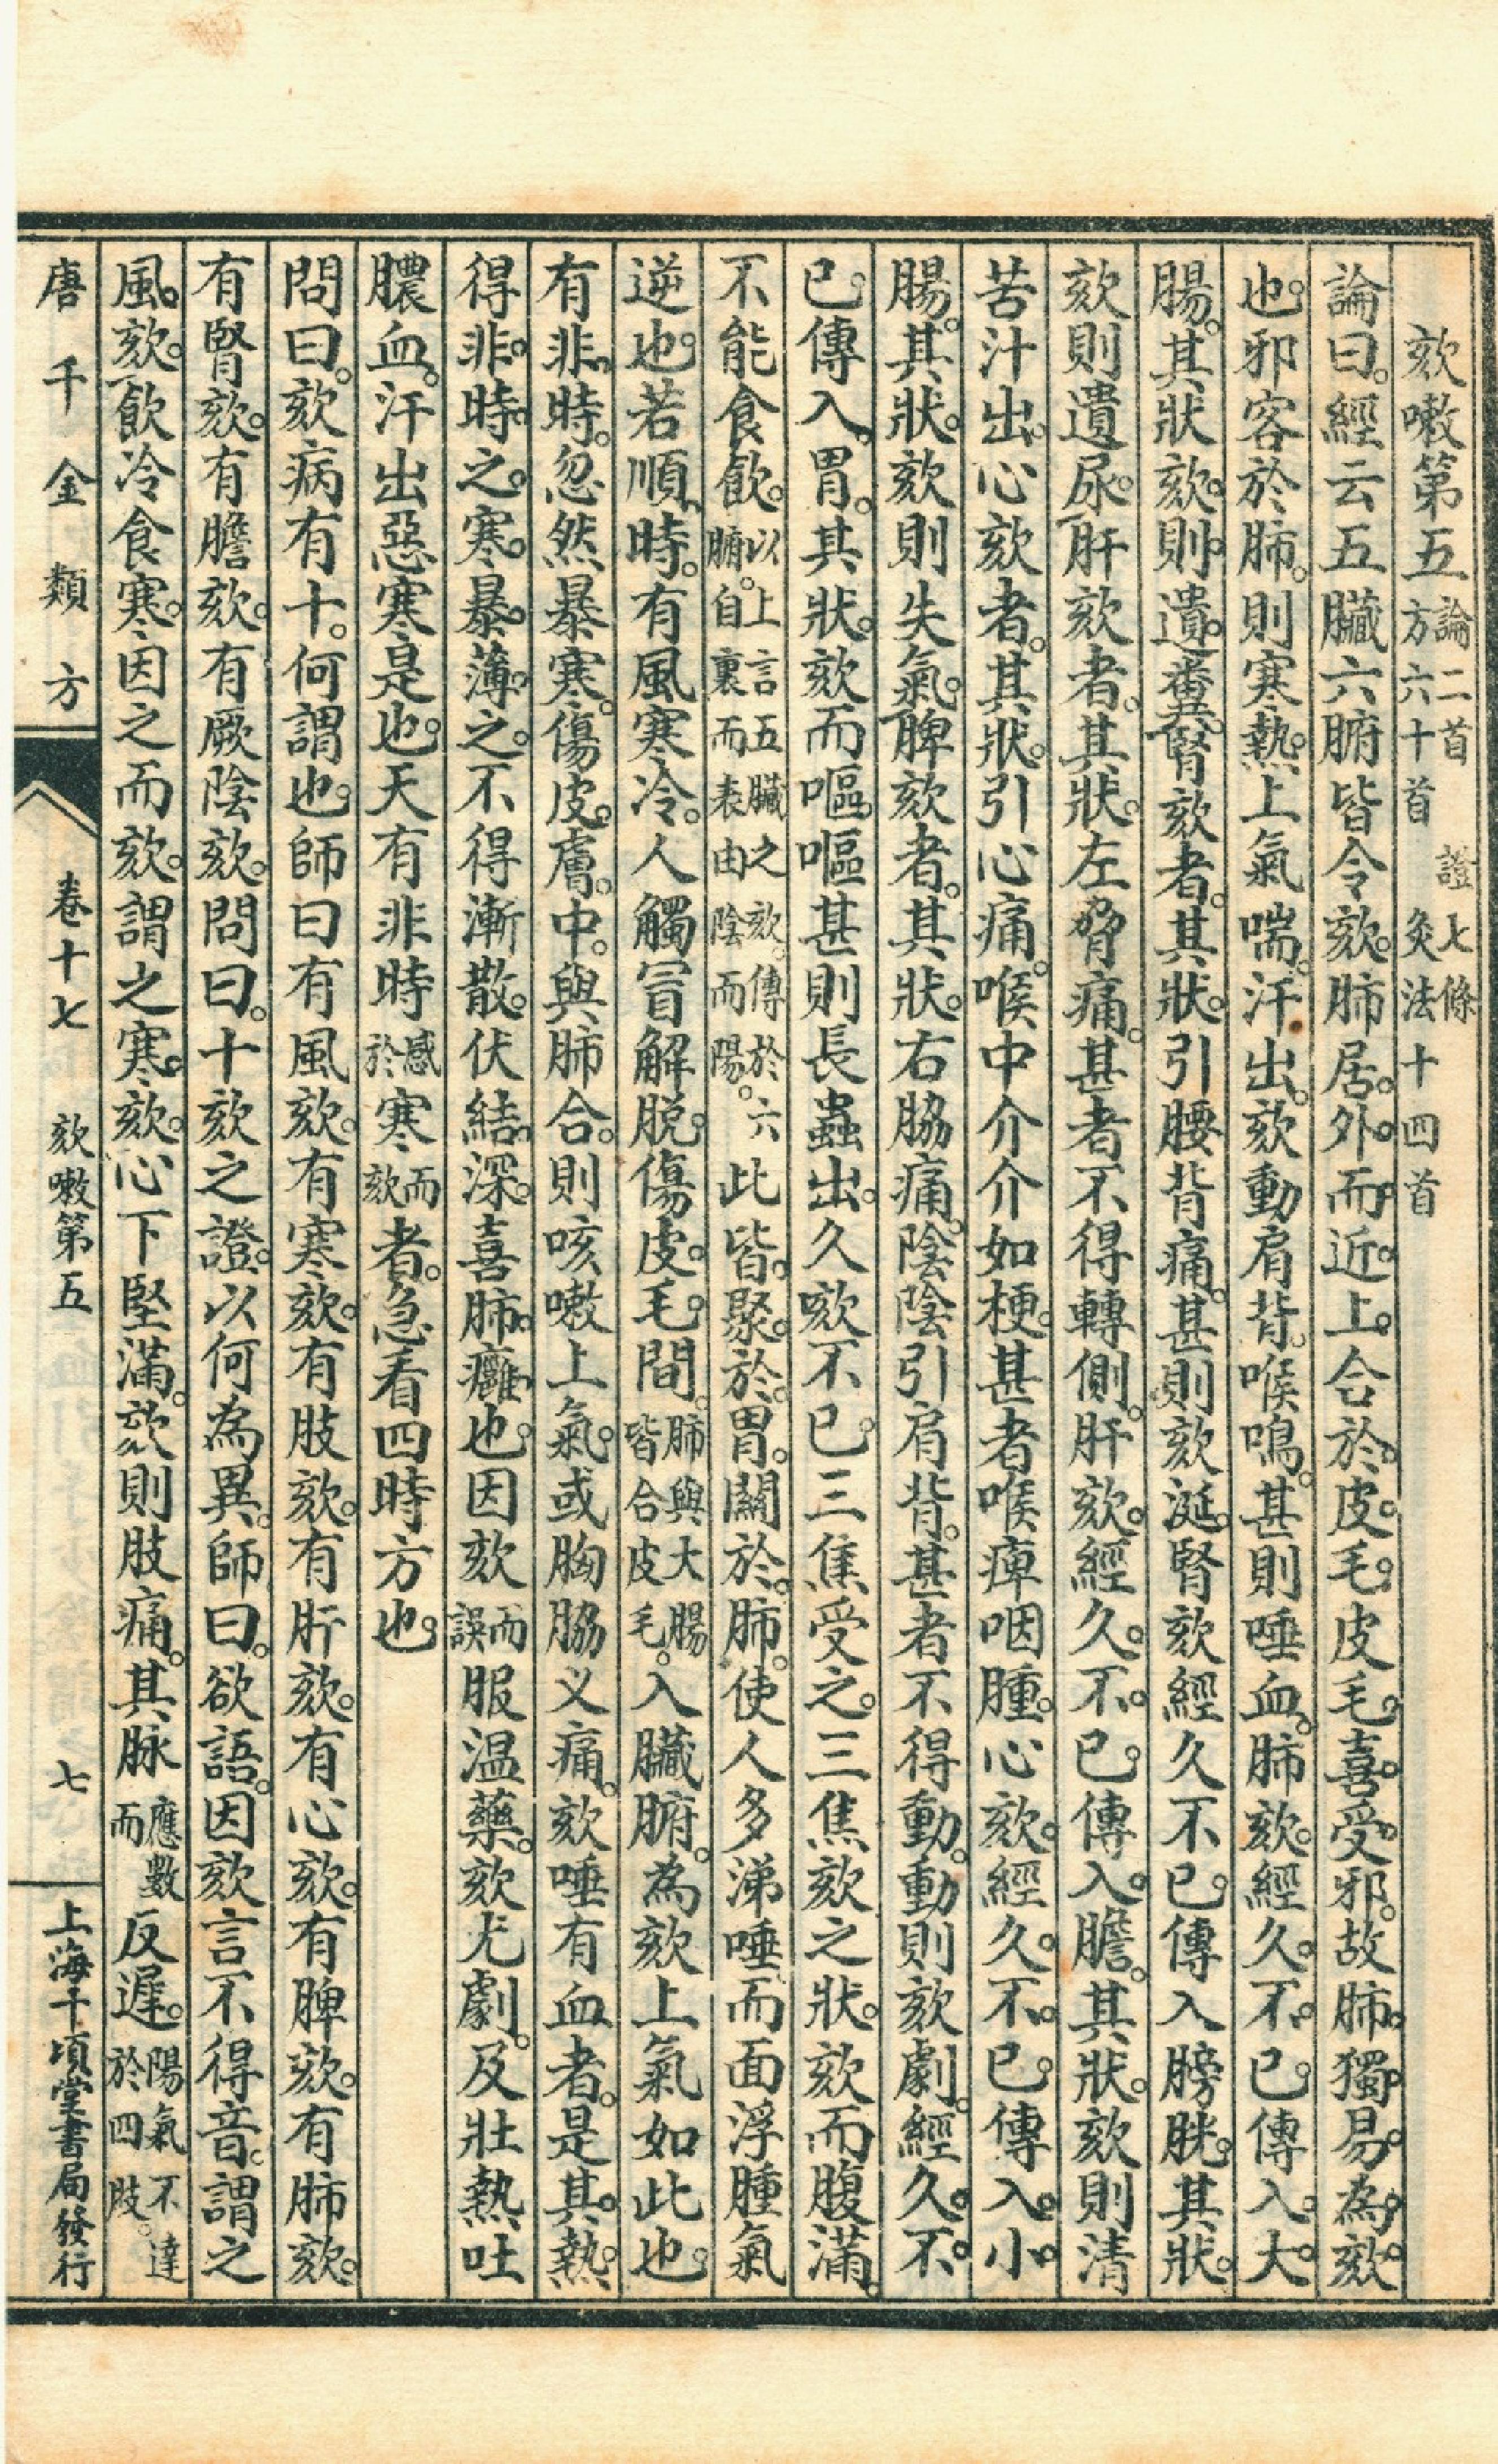 欬嗽第五論二首 證七條方六十首 灸法十四首
論曰。經云五臟六腑皆令欬。肺居。外。而。近。上。合。於。皮。毛。皮毛。喜。受。邪。故肺。獨。易。為。欬。
也。邪客於肺。則寒熱。上氣喘。汗出。欬動肩背。喉鳴。甚則唾血。肺欬。經久。不。已。傳入。大。
腸。其狀欬。則。遺。糞。腎欬者。其狀。引腰背痛。甚則欬涎。腎欬經久不已。傳入膀胱。其狀。
欬則遺尿。肝欬者。其狀。左脅痛。甚者不得轉側。肝欬。經久。不。已。傳入。膽。其狀。欬則清
苦汁出。心欬者。其狀。引心痛。喉中介介如梗。甚者喉痺咽腫。心欬。經久。不。已。傳入。小。
腸。其狀。欬則失氣。脾欬者。其狀。右脇痛。陰陰引肩背。甚者不得動。動則欬劇。經久。不。
已。傳入。胃。其狀。欬而嘔。嘔甚則長蟲出。久欬不已。三焦受之。三焦欬之狀。欬而腹滿。
不能食飲。以上言五臟之欬。傳於六腑。自裏而表由陰而陽。此皆。聚。於。胃。關於。肺。使人多涕唾而面浮腫氣
逆也。若順時。有風寒冷。人觸冒解脱。傷皮。毛。間。肺與大腸皆合皮毛。入臟腑。為欬上氣如此也。
有非時。忽然暴寒。傷皮。膚。中。與肺合。則咳嗽上氣。或胸脇义痛。欬唾有血者。是其。熱。
得非。時。之。寒。暴。薄。之。不得漸散。伏結。深。喜肺。癰。也。因欬而誤服温藥。欬尤劇。及壯熱吐
膿血。汗出惡寒是也。天有非時感於寒而欬者。急看四時方也。
問曰。欬病有十。何謂也。師曰有風欬。有寒欬。有肢欬。有肝欬。有心欬。有脾欬。有肺欬。
有腎欬。有膽欬。有厥陰欬。問曰。十欬之證。以何為異。師曰。欲語。因欬言不得音。謂之
風。欬。飲冷食寒。因之而欬。謂之寒。欬。心下堅滿。欬則肢痛。其脉應數而反遲。陽氣不達於四肢。
唐千金類方 卷十七 欬嗽第五 七 上海千頃堂書局發行